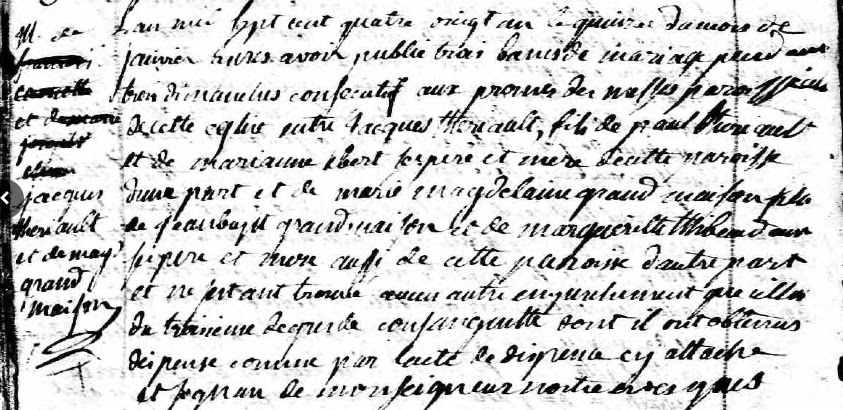 M. de
et de marie
jacques
theriault
et de mag
grand
maison
L'an mil sept cent quatre vingt un le quinze du mois de
janvier apres avoir publie trois bans de mariage pend aux
trois dimanches consecutif aux prones des messes paroissiales
de cette eglise entre Jacques theriault, fils de paul theriault
et de marianne hbert ses pere et mere de cette paroisse
dune part et de marie magdelaine grand maison fille
de jean bapt grandmaison et de marguerille thibaud aux
ses pere et mere aussi de cette paroisse d'autre part
et ne setant trouvé aucun autre empechement que celui
du troisieme de consanguinité dont il ont obtenus
dispense comme par lacte de dispense cy attaché
et signau de monseigneur nostre